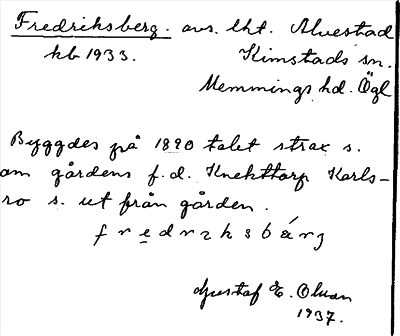 Fredriksberg. avs. lht. Alvestad
hb 1933. Kimstads sn.
Memmings hd. Ögl
Byggdes på 1890 talet strax s.
om gårdens f.d. Knekttorp Karls-
ro s. ut från gården.
fredrıksbárg
Gustaf E. Olsson
1937.